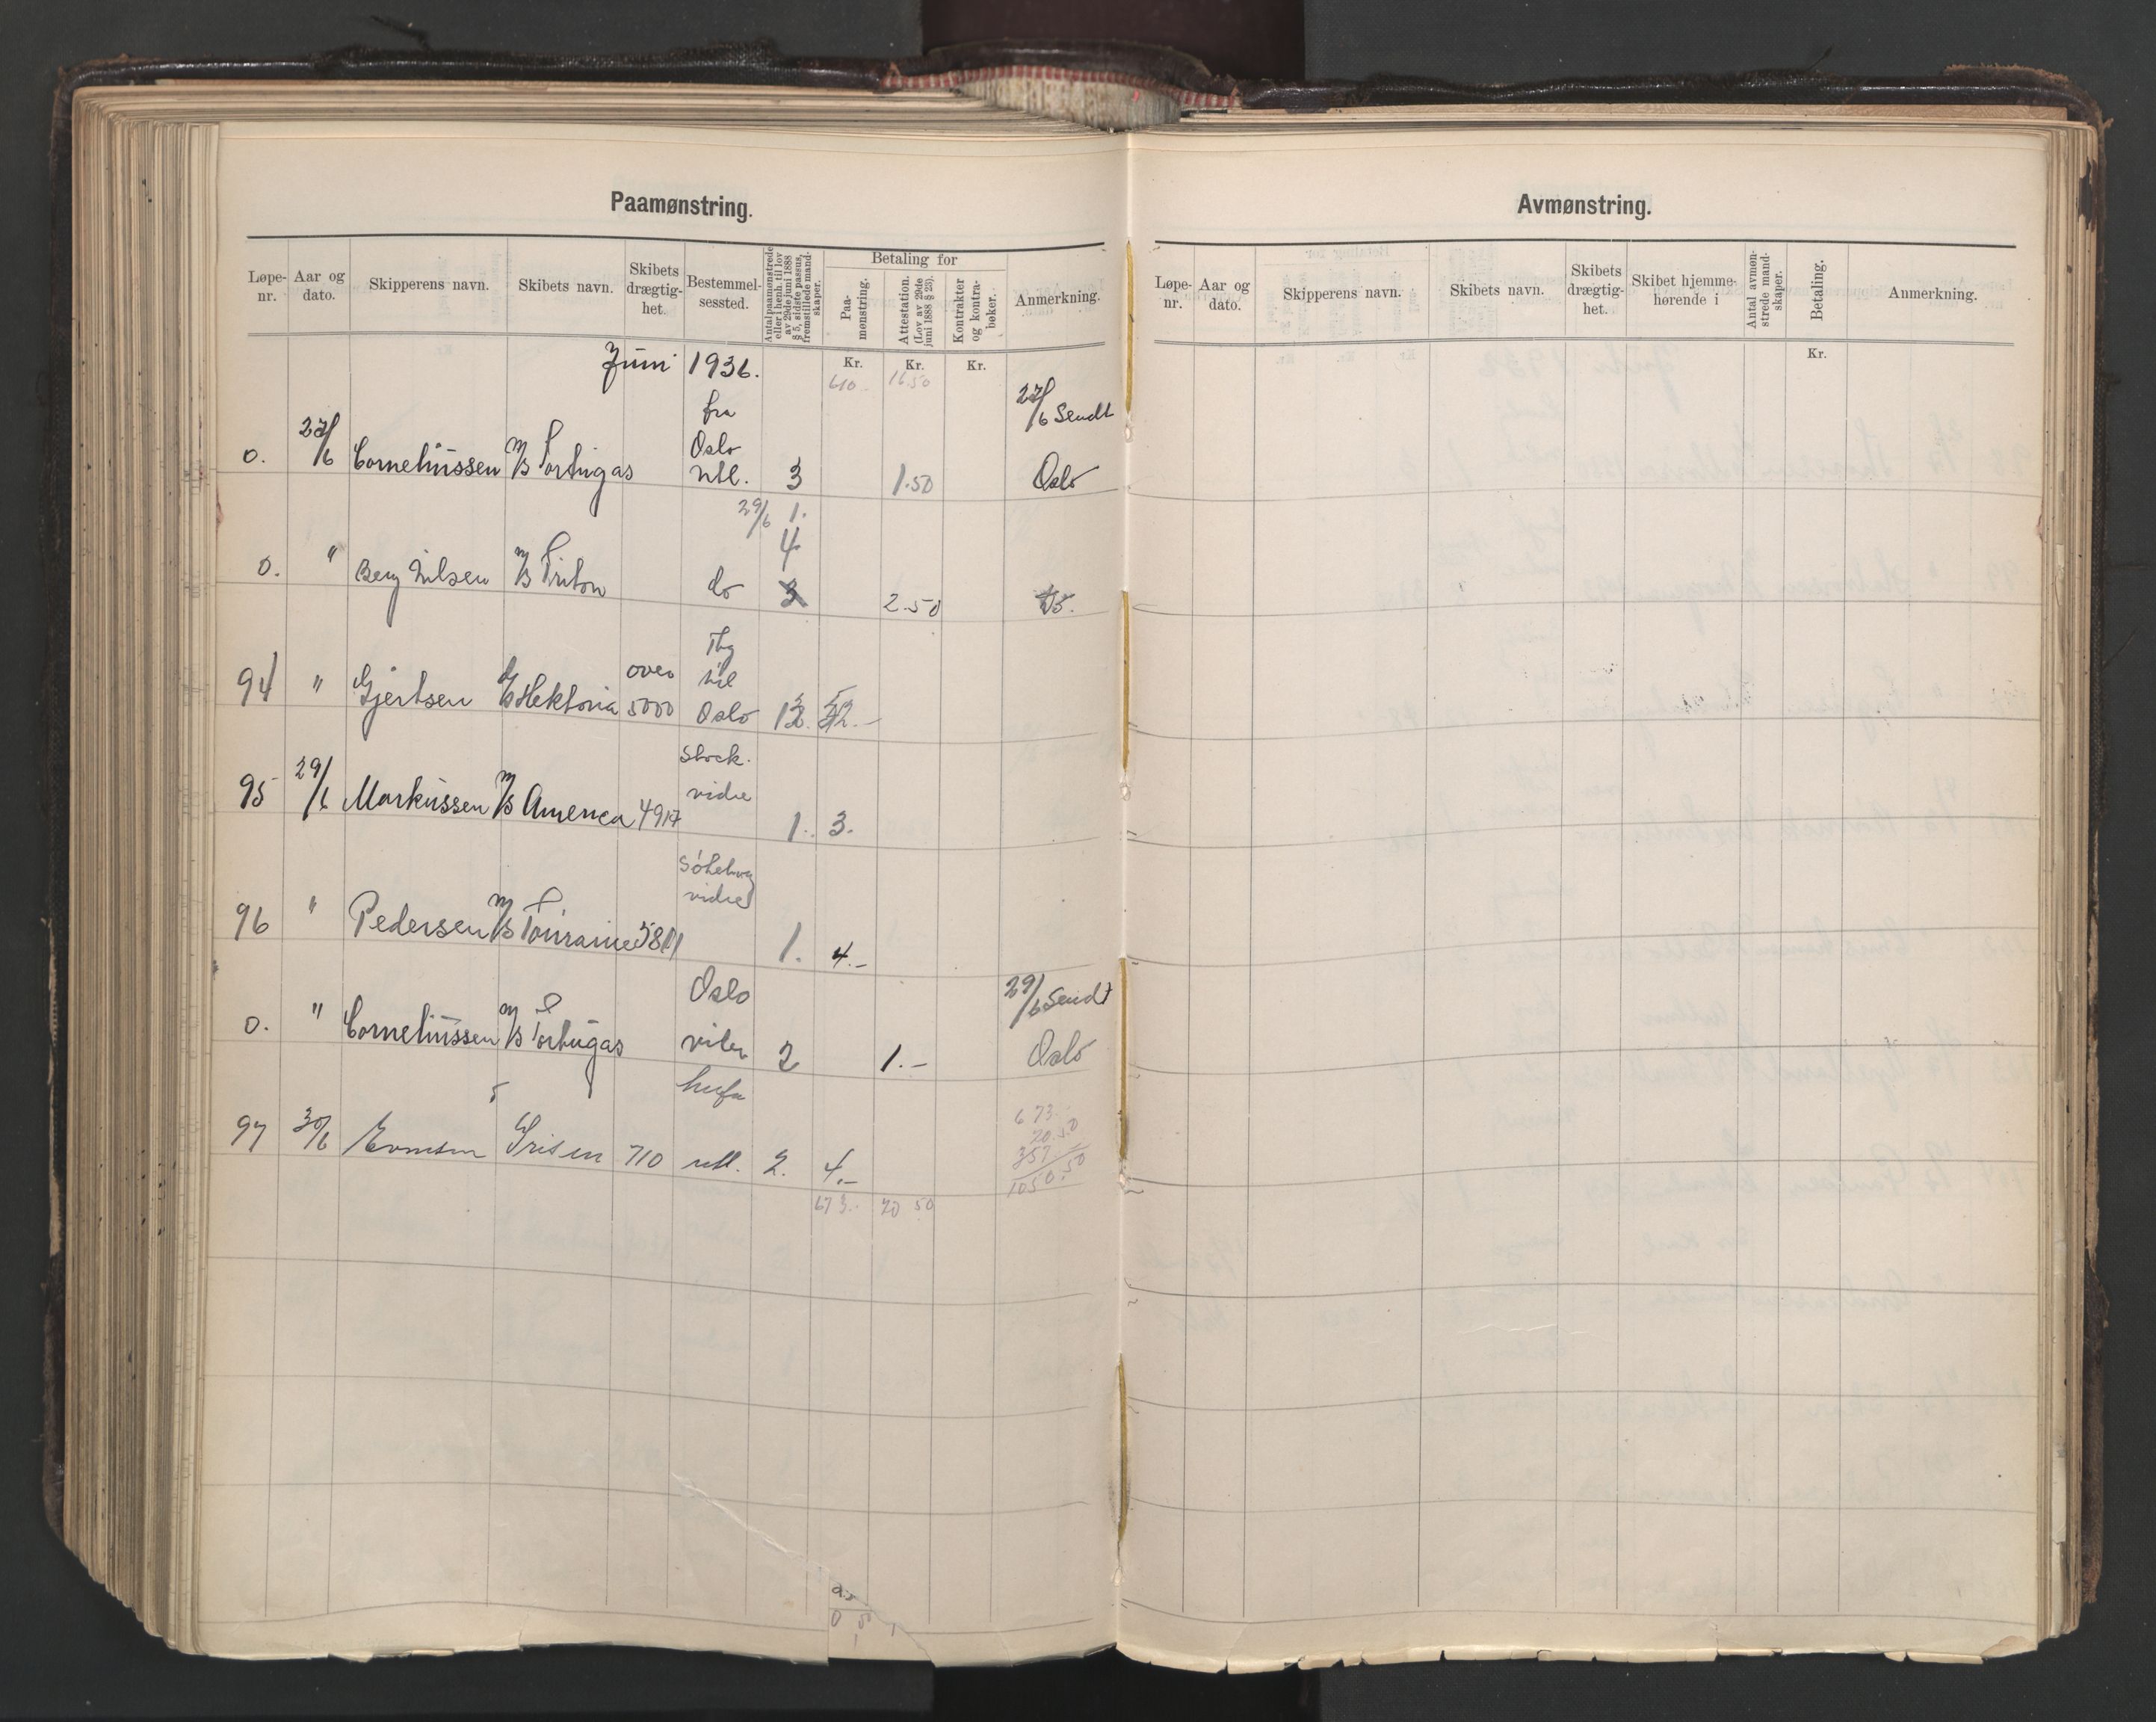 Paamønstring.
Løpe-nr. Aar og dato. Skipperens navn. Skibets navn. Skibets drægtig-het. Bestemmel-sessted. Antal paamønstrede eller i henh. til lov av 29de juni 1888 § 5, sidste passus, fremstillede mand-skaper. Betaling for Paa-mønstring. Attestation. (Lov av 29de juni 1888 § 23). Kontrakter og kontra-bøker. Anmerkning.
Juni 1936. Kr. Kr. Kr.
610. 16.50
fra 27/6 Sendt
o. 27/6 Corneliussen M/S Tortugas Oslo utl. 3 1.50 Oslo
29/6 1.
4
o. " Berg Nilsen M/S Triton do 3 2.50
Tbg til
94 " Gjertsen Hektoria over 5000 Oslo
Stock.
95 29/6 Markussen M/S America 4917 vidre 1. 3.
96 " Pedersen M/S Touraine vidre 1. 4.-
Oslo 29/6 Sendt
o. " Corneliussen M/S Tortugas 2 1.- Oslo
673.-
20.50
357
97 30/6 710 utl. 2. 4.- 1050.50
673.- 20 50
Avmønstring.
Løpe-nr. Aar og dato. Skipperens navn. Skibets navn. Skibets drægtig-het. Skibet hjemme-hørende i Antal avmøn-strede mand-skaper. Betaling. Anmerkning.
Kr.